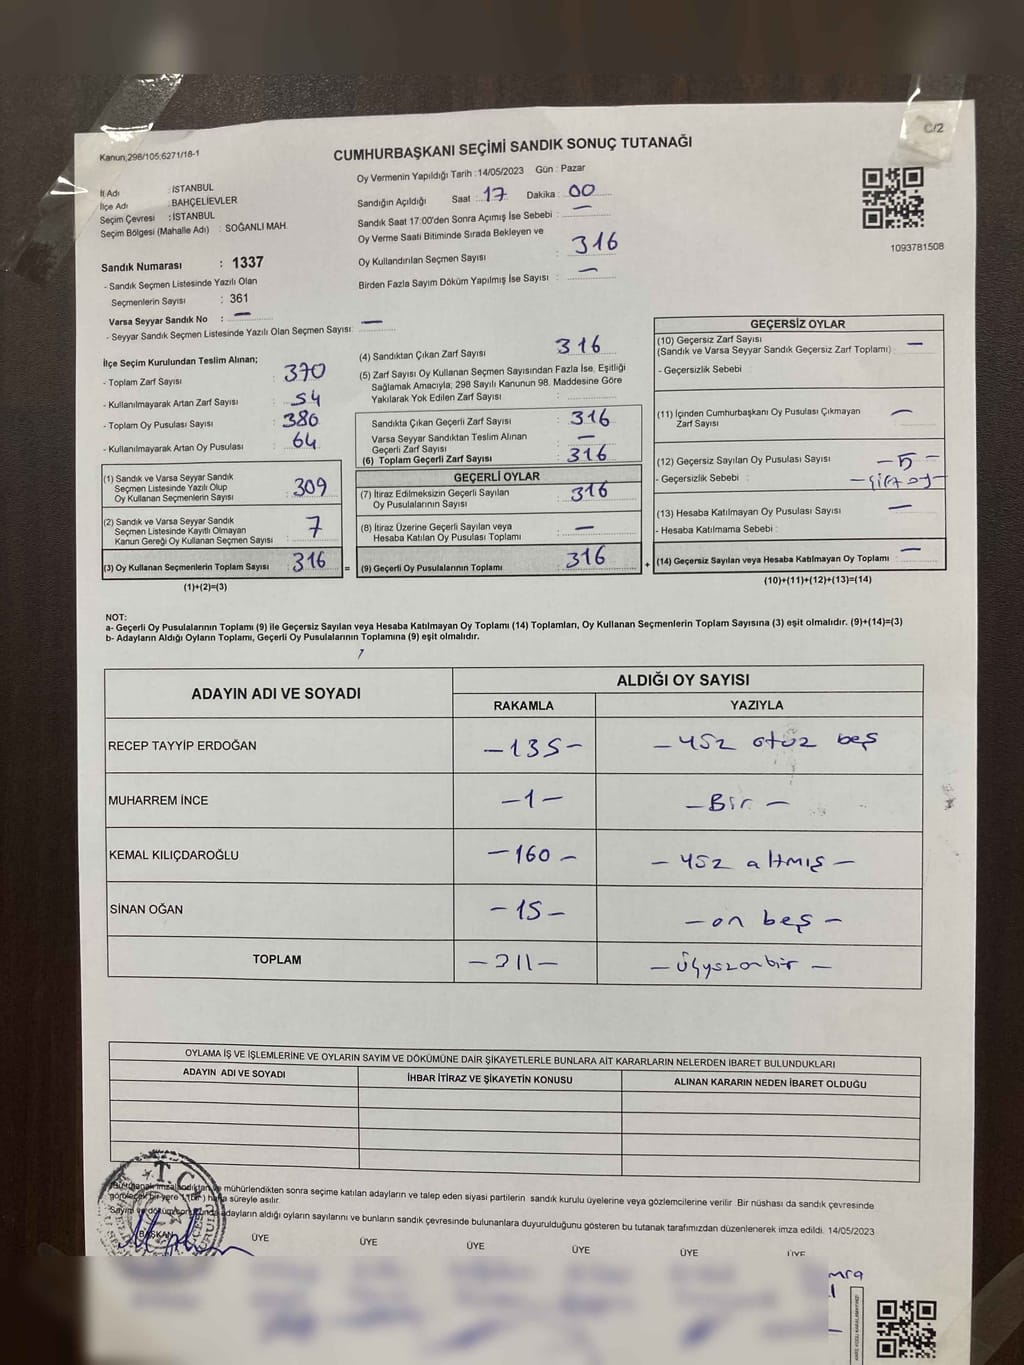 C/2
Kanun;298/105;6271/18-1
CUMHURBAŞKANI SEÇİMİ SANDIK SONUÇ TUTANAĞI
İl Adı : İSTANBUL
İlçe Adı : BAHÇELİEVLER
Seçim Çevresi : İSTANBUL
Seçim Bölgesi (Mahalle Adı) : SOĞANLI MAH.
Oy Vermenin Yapıldığı Tarih : 14/05/2023 Gün : Pazar
Sandığın Açıldığı Saat : 17 Dakika : 00
Sandık Saat 17:00'den Sonra Açımış İse Sebebi : —
Oy Verme Saati Bitiminde Sırada Bekleyen ve
Oy Kullandırılan Seçmen Sayısı : 316
Birden Fazla Sayım Döküm Yapılmış İse Sayısı : —
1093781508
Sandık Numarası : 1337
- Sandık Seçmen Listesinde Yazılı Olan
Seçmenlerin Sayısı : 361
Varsa Seyyar Sandık No : —
- Seyyar Sandık Seçmen Listesinde Yazılı Olan Seçmen Sayısı: —
İlçe Seçim Kurulundan Teslim Alınan;
- Toplam Zarf Sayısı : 370
- Kullanılmayarak Artan Zarf Sayısı : 54
- Toplam Oy Pusulası Sayısı : 380
- Kullanılmayarak Artan Oy Pusulası : 64
(1) Sandık ve Varsa Seyyar Sandık
Seçmen Listesinde Yazılı Olup
Oy Kullanan Seçmenlerin Sayısı : 309
(2) Sandık ve Varsa Seyyar Sandık
Seçmen Listesinde Kayıtlı Olmayan
Kanun Gereği Oy Kullanan Seçmen Sayısı : 7
(3) Oy Kullanan Seçmenlerin Toplam Sayısı : 316 =
(1)+(2)=(3)
(4) Sandıktan Çıkan Zarf Sayısı : 316
(5) Zarf Sayısı Oy Kullanan Seçmen Sayısından Fazla İse, Eşitliği
Sağlamak Amacıyla; 298 Sayılı Kanunun 98. Maddesine Göre
Yakılarak Yok Edilen Zarf Sayısı :
Sandıkta Çıkan Geçerli Zarf Sayısı : 316
Varsa Seyyar Sandıktan Teslim Alınan
Geçerli Zarf Sayısı : —
(6) Toplam Geçerli Zarf Sayısı : 316
GEÇERLİ OYLAR
(7) İtiraz Edilmeksizin Geçerli Sayılan
Oy Pusulalarının Sayısı : 316
(8) İtiraz Üzerine Geçerli Sayılan veya
Hesaba Katılan Oy Pusulası Toplamı : —
(9) Geçerli Oy Pusulalarının Toplamı : 316 +
GEÇERSİZ OYLAR
(10) Geçersiz Zarf Sayısı : —
(Sandık ve Varsa Seyyar Sandık Geçersiz Zarf Toplamı)
- Geçersizlik Sebebi :
(11) İçinden Cumhurbaşkanı Oy Pusulası Çıkmayan
Zarf Sayısı : —
(12) Geçersiz Sayılan Oy Pusulası Sayısı : — 5 —
- Geçersizlik Sebebi : — çift oy —
(13) Hesaba Katılmayan Oy Pusulası Sayısı : —
- Hesaba Katılmama Sebebi :
(14) Geçersiz Sayılan veya Hesaba Katılmayan Oy Toplamı : —
(10)+(11)+(12)+(13)=(14)
NOT:
a- Geçerli Oy Pusulalarının Toplamı (9) ile Geçersiz Sayılan veya Hesaba Katılmayan Oy Toplamı (14) Toplamları, Oy Kullanan Seçmenlerin Toplam Sayısına (3) eşit olmalıdır. (9)+(14)=(3)
b- Adayların Aldığı Oyların Toplamı, Geçerli Oy Pusulalarının Toplamına (9) eşit olmalıdır.
ADAYIN ADI VE SOYADI
ALDIĞI OY SAYISI
RAKAMLA YAZIYLA
RECEP TAYYİP ERDOĞAN — 135 — — yüz otuz beş
MUHARREM İNCE — 1 — — Bir —
KEMAL KILIÇDAROĞLU — 160 — — yüz altmış —
SİNAN OĞAN — 15 — — on beş —
TOPLAM — 311 — — Üçyüzonbir —
OYLAMA İŞ VE İŞLEMLERİNE VE OYLARIN SAYIM VE DÖKÜMÜNE DAİR ŞİKAYETLERLE BUNLARA AİT KARARLARIN NELERDEN İBARET BULUNDUKLARI
ADAYIN ADI VE SOYADI İHBAR İTİRAZ VE ŞİKAYETİN KONUSU ALINAN KARARIN NEDEN İBARET OLDUĞU
T.C.
mühürlendikten sonra seçime katılan adayların ve talep eden siyasi partilerin sandık kurulu üyelerine veya gözlemcilerine verilir. Bir nüshası da sandık çevresinde
süreyle asılır.
adayların aldığı oyların sayılarını ve bunların sandık çevresinde bulunanlara duyurulduğunu gösteren bu tutanak tarafımızdan düzenlenerek imza edildi. 14/05/2023
BAŞKAN ÜYE ÜYE ÜYE ÜYE ÜYE ÜYE